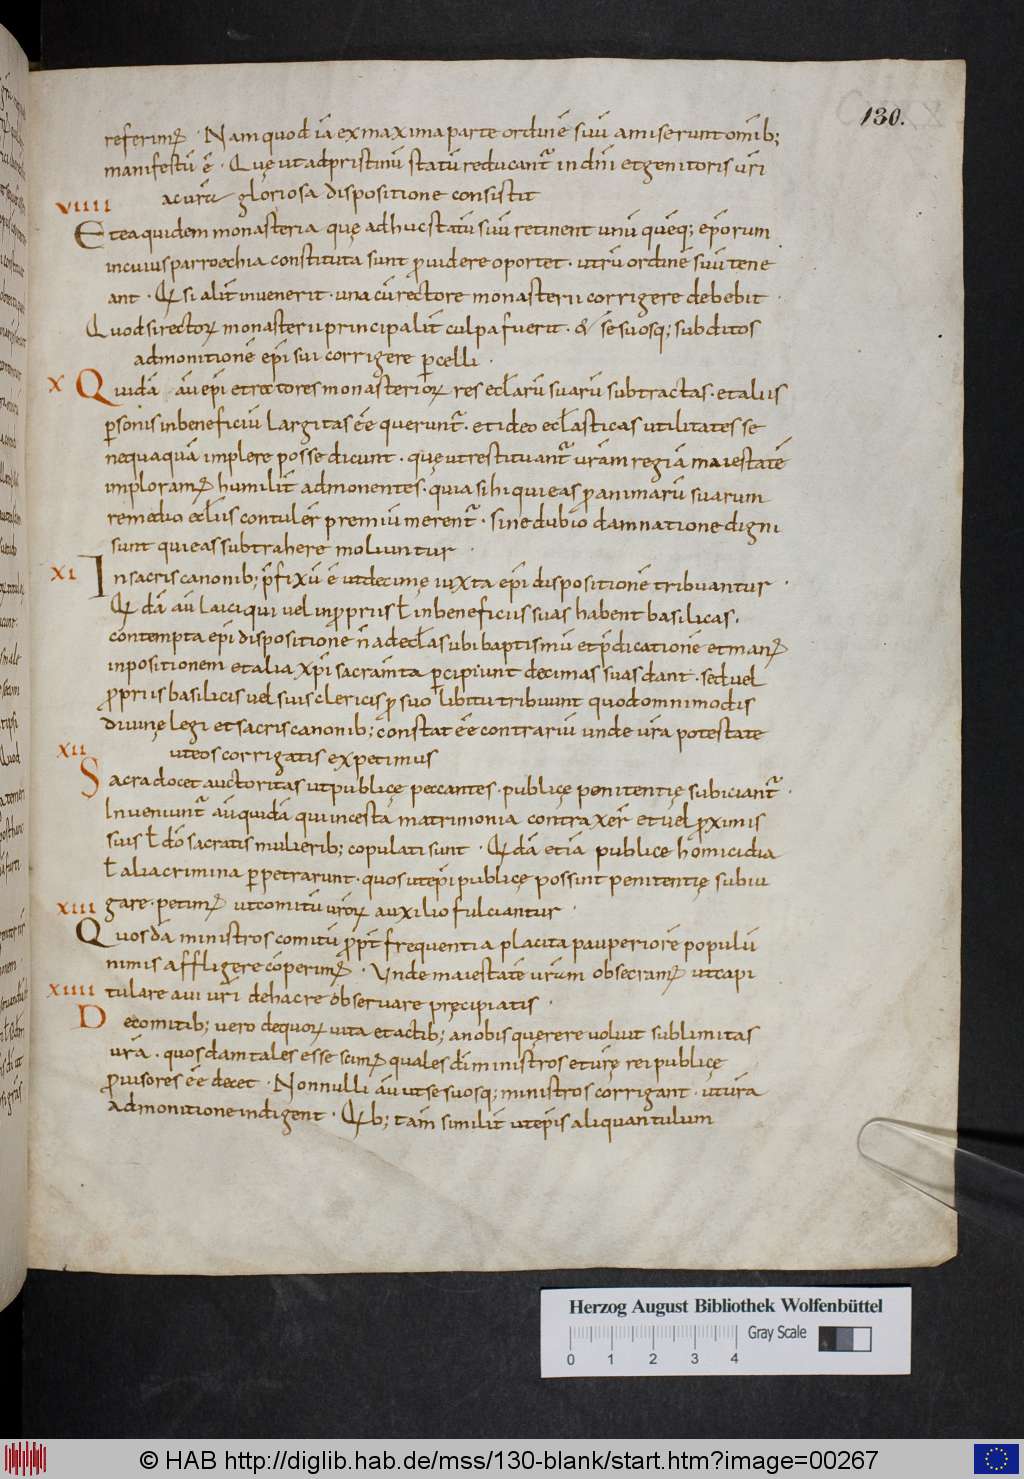 130.
referim᷒ · Nam quod iā ex maxima parte ordinē suū amiserunt omīb;
manifestū ē · Quę ut ad pristinū statū reducant᷒ in dn̄i et genitoris ur̄i
ac ur̄a gloriosa dispositione consistit
VIIII
Et ea quidem monasteria quę adhuc statū suū retinent unū quēq; ep̄orum
in cuius parroechia constituta sunt ꝓuidere oportet · utrū ordinē suū tene
ant · Qđ si alit̄ inuenerit · una cū rectore monasterii corrigere debebit ·
Quod si rectoꝝ monasterii principalit̄ culpa fuerit · & se suosq; subditos
admonitionē ep̄i sui corrigere ꝑcelli ·
X Quidā aū ep̄i et rectores monasterioꝝ res ecl̄arū suarū subtractas · et aliis
ꝑsonis in beneficiū largitas eē querunt᷒ · et ideo ecl̄asticas utilitates se
nequaquā implere posse dicunt · quę ut restituant᷒ ur̄am regiā maiestatē
imploram᷒ humilit̄ admonentes · quia si hi qui eas ꝓ animarū suarum
remedio ecl̄iis contuler̄ premiū merent᷒ · sine dubio damnatione digni
sunt qui eas subtrahere moliuntur ·
XI In sacris canonib; p̄fixū ē ut decimę iuxta ep̄i dispositionē tribuantur ·
Qđdā aū laici qui uel in ꝓpriis ł in beneficiis suas habent basilicas ·
contempta ep̄i dispositione n̄ ad ecl̄as ubi baptismū et p̄dicationē et man᷒
inpositionem et alia xp̄i sacram̄ta ꝑcipiunt decimas suas dant · sed uel
ꝓpriis basilicis uel suis clericis ꝓ suo libitu tribuunt quod omnimodis
diuinę legi et sacris canonib; constat eē contrariū unde ur̄a potestate
XII ut eos corrigatis expetimus
Sacra docet auctoritas ut publicę peccantes · publicę penitentię subiciant᷒ ·
Inueniunt᷒ aū quidā qui incesta matrimonia contraxer̄ et uel ꝓximis
suis ł dō sacratis mulierib; copulati sunt · Qđdā etiā publice homicidia
ł alia crimina ꝑpetrarunt · quos ut ep̄i publicę possint penitentię subiu
XIII gare · petim᷒ ut comitū ur̄oꝝ auxilio fulciantur ·
Quosdā ministros comitū ꝓpt̄ frequentia placita pauperiorē populū
nimis affligere cōperim᷒ · Unde maiestatē ur̄am obsecram᷒ ut capi
XIIII tulare aui ur̄i de hac re obseruare pręcipiatis ·
De comitib; uero de quoꝝ uita et actib; a nobis quęrere uoluit sublimitas
ur̄a · quosdam tales esse scim᷒ quales dī ministros et ur̄ę rei publicę
ꝓuisores eē decet · Nonnulli aū ut se suosq; ministros corrigant · ut ur̄a
admonitione indigent · Qđb; tam̄ similit̄ ut ep̄is aliquantulum
Herzog August Bibliothek Wolfenbüttel
Gray Scale
0 1 2 3 4
© HAB http://diglib.hab.de/mss/130-blank/start.htm?image=00267